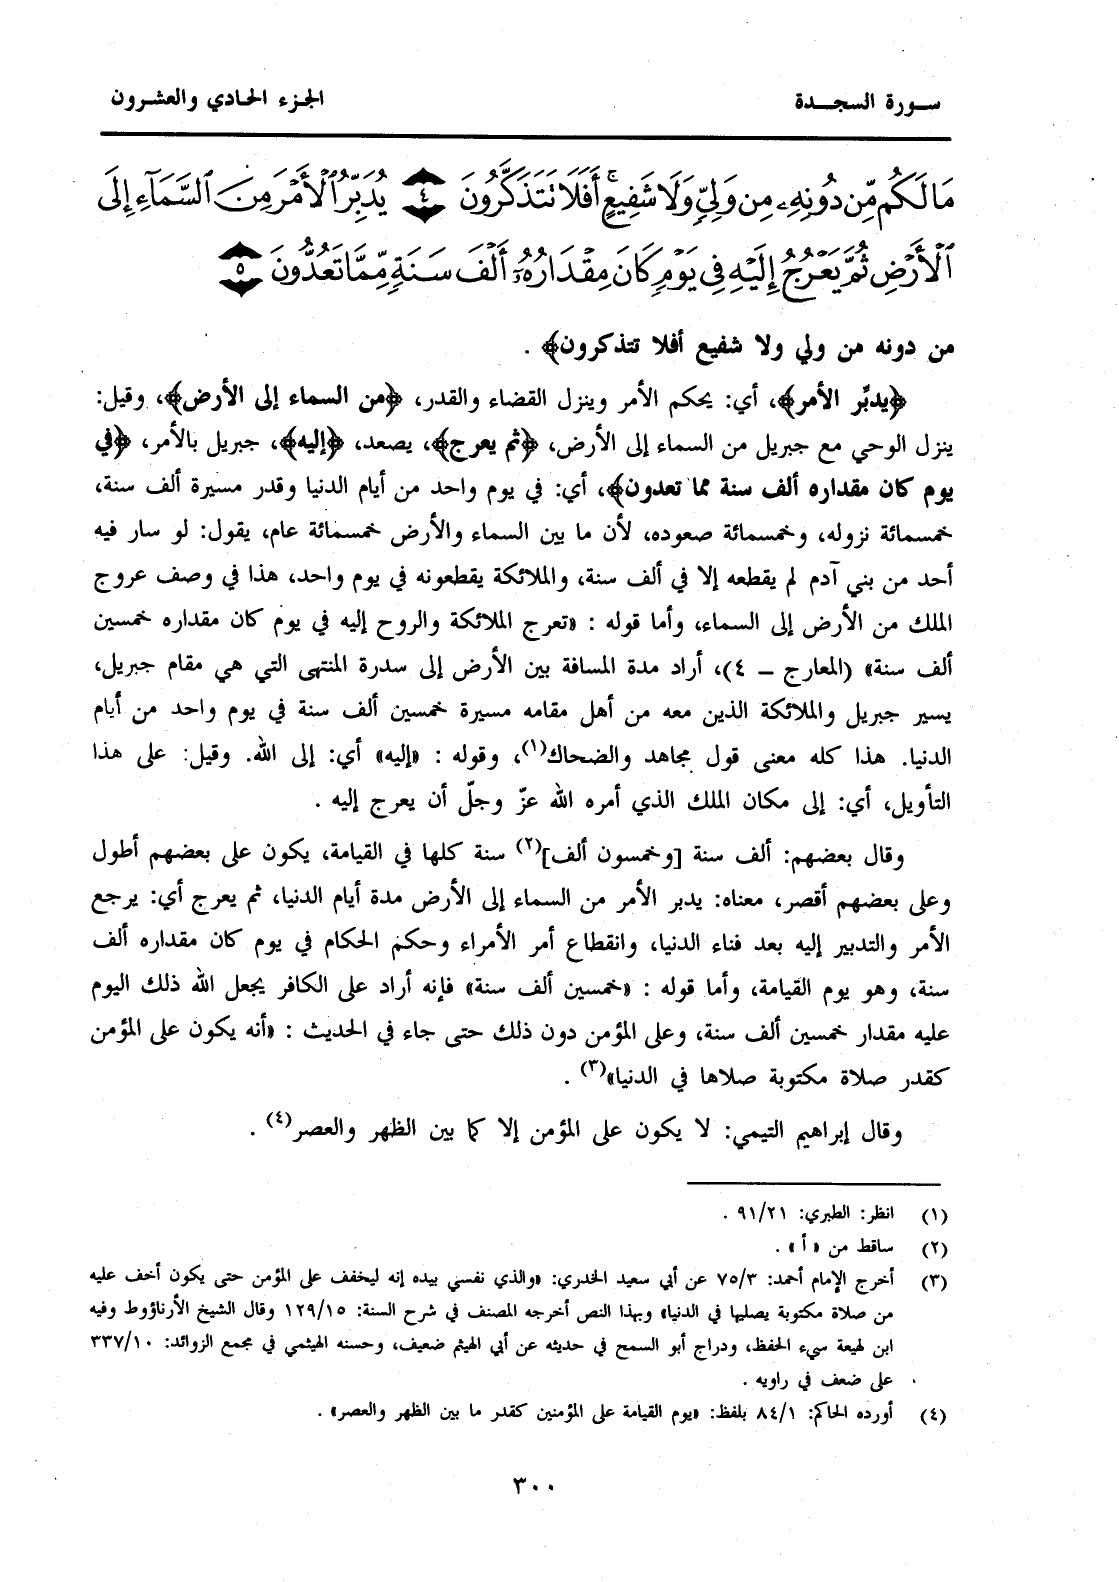 سورة السجدة
الجزء الحادي والعشرون
مَا لَكُم مِّن دُونِهِۦ مِن وَلِيٍّ وَلَا شَفِيعٍ ۚ أَفَلَا تَتَذَكَّرُونَ ٤ يُدَبِّرُ ٱلْأَمْرَ مِنَ ٱلسَّمَآءِ إِلَى
ٱلْأَرْضِ ثُمَّ يَعْرُجُ إِلَيْهِ فِي يَوْمٍ كَانَ مِقْدَارُهُۥٓ أَلْفَ سَنَةٍ مِّمَّا تَعُدُّونَ ٥
من دونه من ولي ولا شفيع أفلا تتذكرون﴾ .
﴿يدبِّر الأمر﴾، أي: يحكم الأمر وينزل القضاء والقدر، ﴿من السماء إلى الأرض﴾، وقيل:
ينزل الوحي مع جبريل من السماء إلى الأرض، ﴿ثم يعرج﴾، يصعد، ﴿إليه﴾، جبريل بالأمر، ﴿في
يوم كان مقداره ألف سنة مما تعدون﴾، أي: في يوم واحد من أيام الدنيا وقدر مسيرة ألف سنة،
خمسمائة نزوله، وخمسمائة صعوده، لأن ما بين السماء والأرض خمسمائة عام، يقول: لو سار فيه
أحد من بني آدم لم يقطعه إلا في ألف سنة، والملائكة يقطعونه في يوم واحد، هذا في وصف عروج
الملك من الأرض إلى السماء، وأما قوله : «تعرج الملائكة والروح إليه في يوم كان مقداره خمسين
ألف سنة» (المعارج ــ ٤)، أراد مدة المسافة بين الأرض إلى سدرة المنتهى التي هي مقام جبريل،
يسير جبريل والملائكة الذين معه من أهل مقامه مسيرة خمسين ألف سنة في يوم واحد من أيام
الدنيا. هذا كله معنى قول مجاهد والضحاك(١)، وقوله : «إليه» أي: إلى الله. وقيل: على هذا
التأويل، أي: إلى مكان الملك الذي أمره الله عزّ وجلّ أن يعرج إليه .
وقال بعضهم: ألف سنة [وخمسون ألف](٢) سنة كلها في القيامة، يكون على بعضهم أطول
وعلى بعضهم أقصر، معناه: يدبر الأمر من السماء إلى الأرض مدة أيام الدنيا، ثم يعرج أي: يرجع
الأمر والتدبير إليه بعد فناء الدنيا، وانقطاع أمر الأمراء وحكم الحكام في يوم كان مقداره ألف
سنة، وهو يوم القيامة، وأما قوله : «خمسين ألف سنة» فإنه أراد على الكافر يجعل الله ذلك اليوم
عليه مقدار خمسين ألف سنة، وعلى المؤمن دون ذلك حتى جاء في الحديث : «أنه يكون على المؤمن
كقدر صلاة مكتوبة صلاها في الدنيا»(٣) .
وقال إبراهيم التيمي: لا يكون على المؤمن إلا كما بين الظهر والعصر(٤) .
(١) انظر: الطبري: ٩١/٢١ .
(٢) ساقط من «أ» .
(٣) أخرج الإمام أحمد: ٧٥/٣ عن أبي سعيد الخدري: «والذي نفسي بيده إنه ليخفف على المؤمن حتى يكون أخف عليه
من صلاة مكتوبة يصليها في الدنيا» وبهذا النص أخرجه المصنف في شرح السنة: ١٢٩/١٥ وقال الشيخ الأرناؤوط وفيه
ابن لهيعة سيء الحفظ، ودراج أبو السمح في حديثه عن أبي الهيثم ضعيف، وحسنه الهيثمي في مجمع الزوائد: ٣٣٧/١٠
على ضعف في راويه .
(٤) أورده الحاكم: ٨٤/١ بلفظ: «يوم القيامة على المؤمنين كقدر ما بين الظهر والعصر» .
٣٠٠